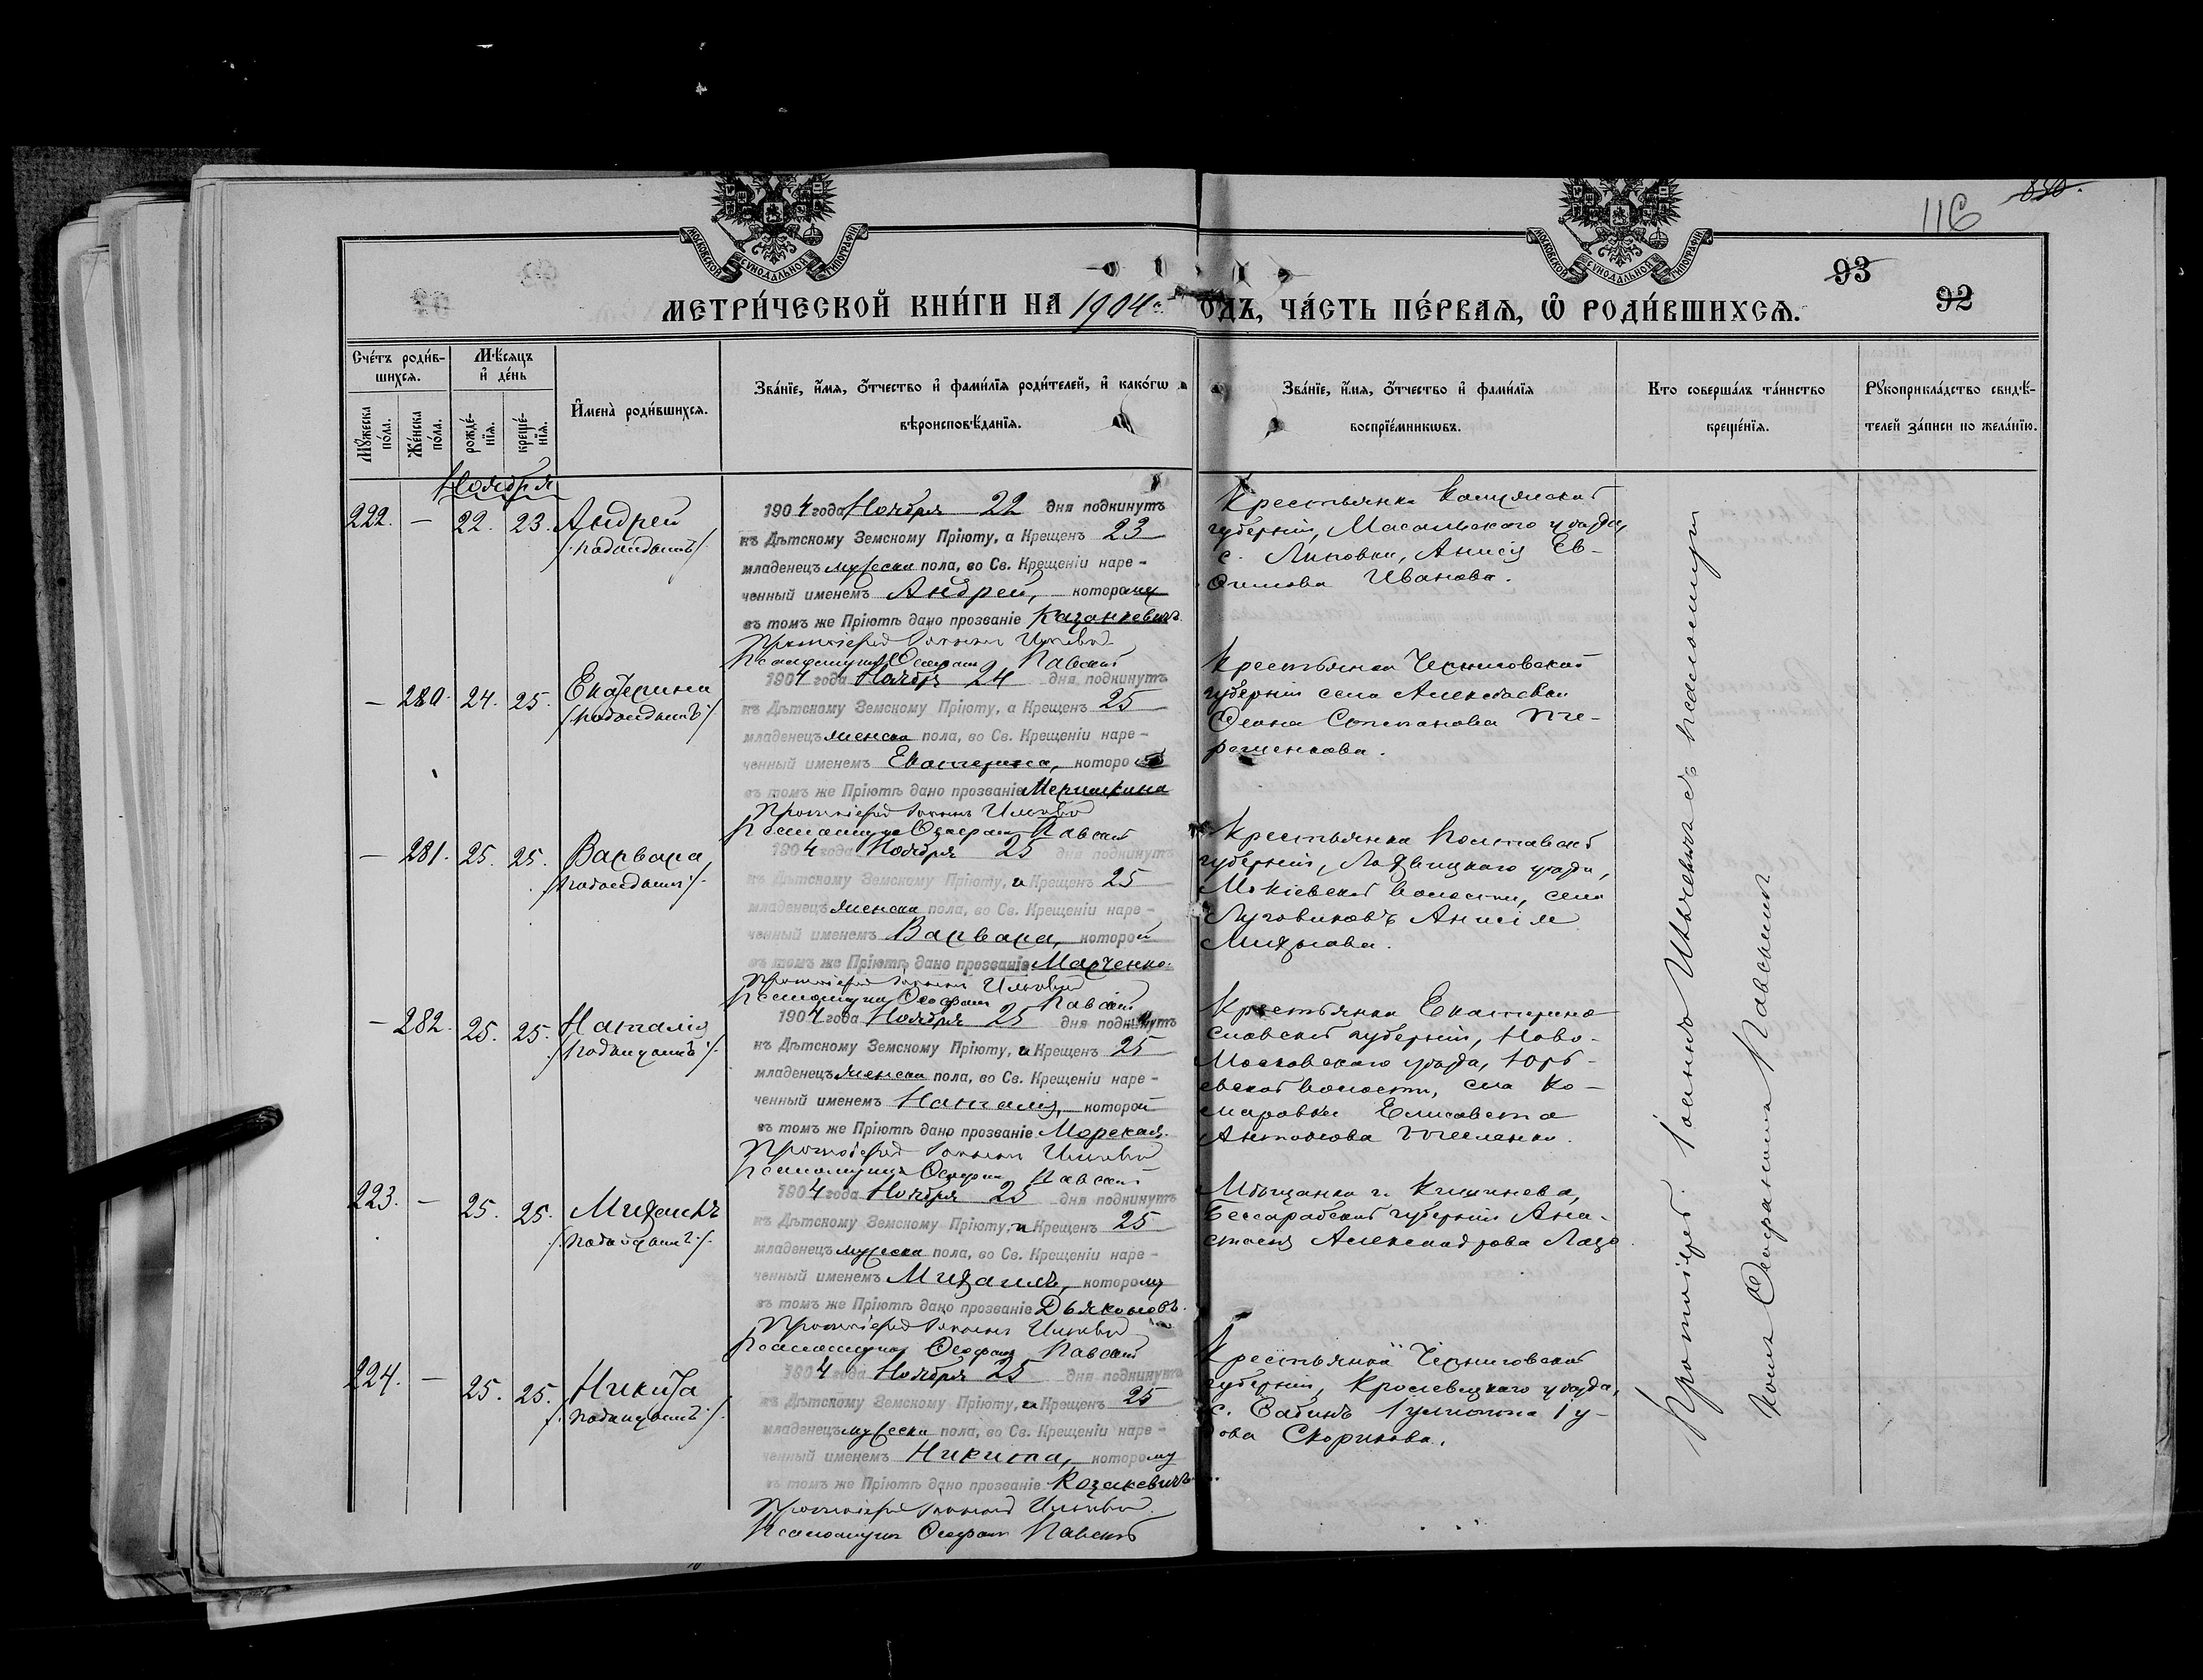 830.
116
МОСКОВСКОЙ СѴНОДАЛЬНОЙ ТИПОГРАФІИ
МОСКОВСКОЙ СѴНОДАЛЬНОЙ ТИПОГРАФІИ
93
92
МЕТРИ́ЧЕСКОЙ КНИ́ГИ НА 1904 ОДЪ, ЧА́СТЬ ПЕ́РВАѦ, Ѡ҆ РОДИ́ВШИХСѦ.
Счетъ роди́в-
шихсѧ.
Мѣ́сѧцъ
и҆ де́нь
Мꙋ́жеска
по́ла.
Же́нска
по́ла.
рожде́-
нїѧ.
креще́-
нїѧ.
И҆мена̀ роди́вшихсѧ.
Зва́нїе, и҆́мѧ, ѻ҆́тчество и҆ фами́лїѧ роди́телей, и҆ како́гѡ
вѣроисповѣ́данїѧ.
Зва́нїе, и҆́мѧ, ѻ҆́тчество и҆ фами́лїѧ
воспрїе́мникѡвъ.
Кто соверша́лъ та́инство
креще́нїѧ.
Рꙋкоприкла́дство свидѣ́-
телей за́писи по жела́нїю.
Ноября
222. — 22. 23. Андрей
/подкидышъ/
1904 года Ноября 22 дня подкинутъ
къ Дѣтскому Земскому Пріюту, а Крещенъ 23
младенецъ мужеска пола, во Св. Крещеніи наре-
ченный именемъ Андрей, которому
въ томъ же Пріютѣ дано прозваніе Казанкевичъ
Протоіерей Іоаннъ
Псаломщикъ Павскій
Крестьянка Калужской
губерніи, Масальскаго уѣзда,
с. Липовки, Анисія Ев-
Иванова.
— 280. 24. 25. Екатерина
/подкидышъ/
1904 года Ноября 24 дня подкинутъ
къ Дѣтскому Земскому Пріюту, а Крещенъ 25
младенецъ женска пола, во Св. Крещеніи наре-
ченный именемъ Екатерина, которой
въ томъ же Пріютѣ дано прозваніе
Протоіерей Іоаннъ
Псаломщикъ Павскій
Крестьянка Черниговской
губерніи села Алексѣевки
Степанова
— 281. 25. 25. Варвара
/подкидышъ/
1904 года Ноября 25 дня подкинутъ
къ Дѣтскому Земскому Пріюту, и Крещенъ 25
младенецъ женска пола, во Св. Крещеніи наре-
ченный именемъ Варвара, которой
въ томъ же Пріютѣ дано прозваніе Марченко.
Протоіерей Іоаннъ
Псаломщикъ Павскій
Крестьянка Полтавской
губерніи, Лохвицкаго уѣзда,
волости, села
Луговиковъ Анисія
— 282. 25. 25. Наталія
/подкидышъ/
1904 года Ноября 25 дня подкинутъ
къ Дѣтскому Земскому Пріюту, и Крещенъ 25
младенецъ женска пола, во Св. Крещеніи наре-
ченный именемъ Наталія, которой
въ томъ же Пріютѣ дано прозваніе Морская.
Протоіерей Іоаннъ
Псаломщикъ Павскій
Крестьянка Екатерино-
славской губерніи, Ново-
Московскаго уѣзда, Юрь-
евской волости, села Ко-
маровки Елисавета
Антонова
223. — 25. 25. Михаилъ
/подкидышъ/
1904 года Ноября 25 дня подкинутъ
къ Дѣтскому Земскому Пріюту, и Крещенъ 25
младенецъ мужеска пола, во Св. Крещеніи наре-
ченный именемъ Михаилъ, которому
въ томъ же Пріютѣ дано прозваніе Дьяконовъ.
Протоіерей Іоаннъ
Псаломщикъ Павскій
Мѣщанка г. Кишинева,
Бессарабской губерніи Ана-
стасія Александрова
224. — 25. 25. Никита
/подкидышъ/
1904 года Ноября 25 дня подкинутъ
къ Дѣтскому Земскому Пріюту, и Крещенъ 25
младенецъ мужеска пола, во Св. Крещеніи наре-
ченный именемъ Никита, которому
въ томъ же Пріютѣ дано прозваніе Козакевичъ.
Протоіерей Іоаннъ
Псаломщикъ Павскій
Крестьянка Черниговской
губерніи, Кролевецкаго уѣзда,
Скорикова.
Протоіерей Іоаннъ съ псаломщи
комъ Павскимъ